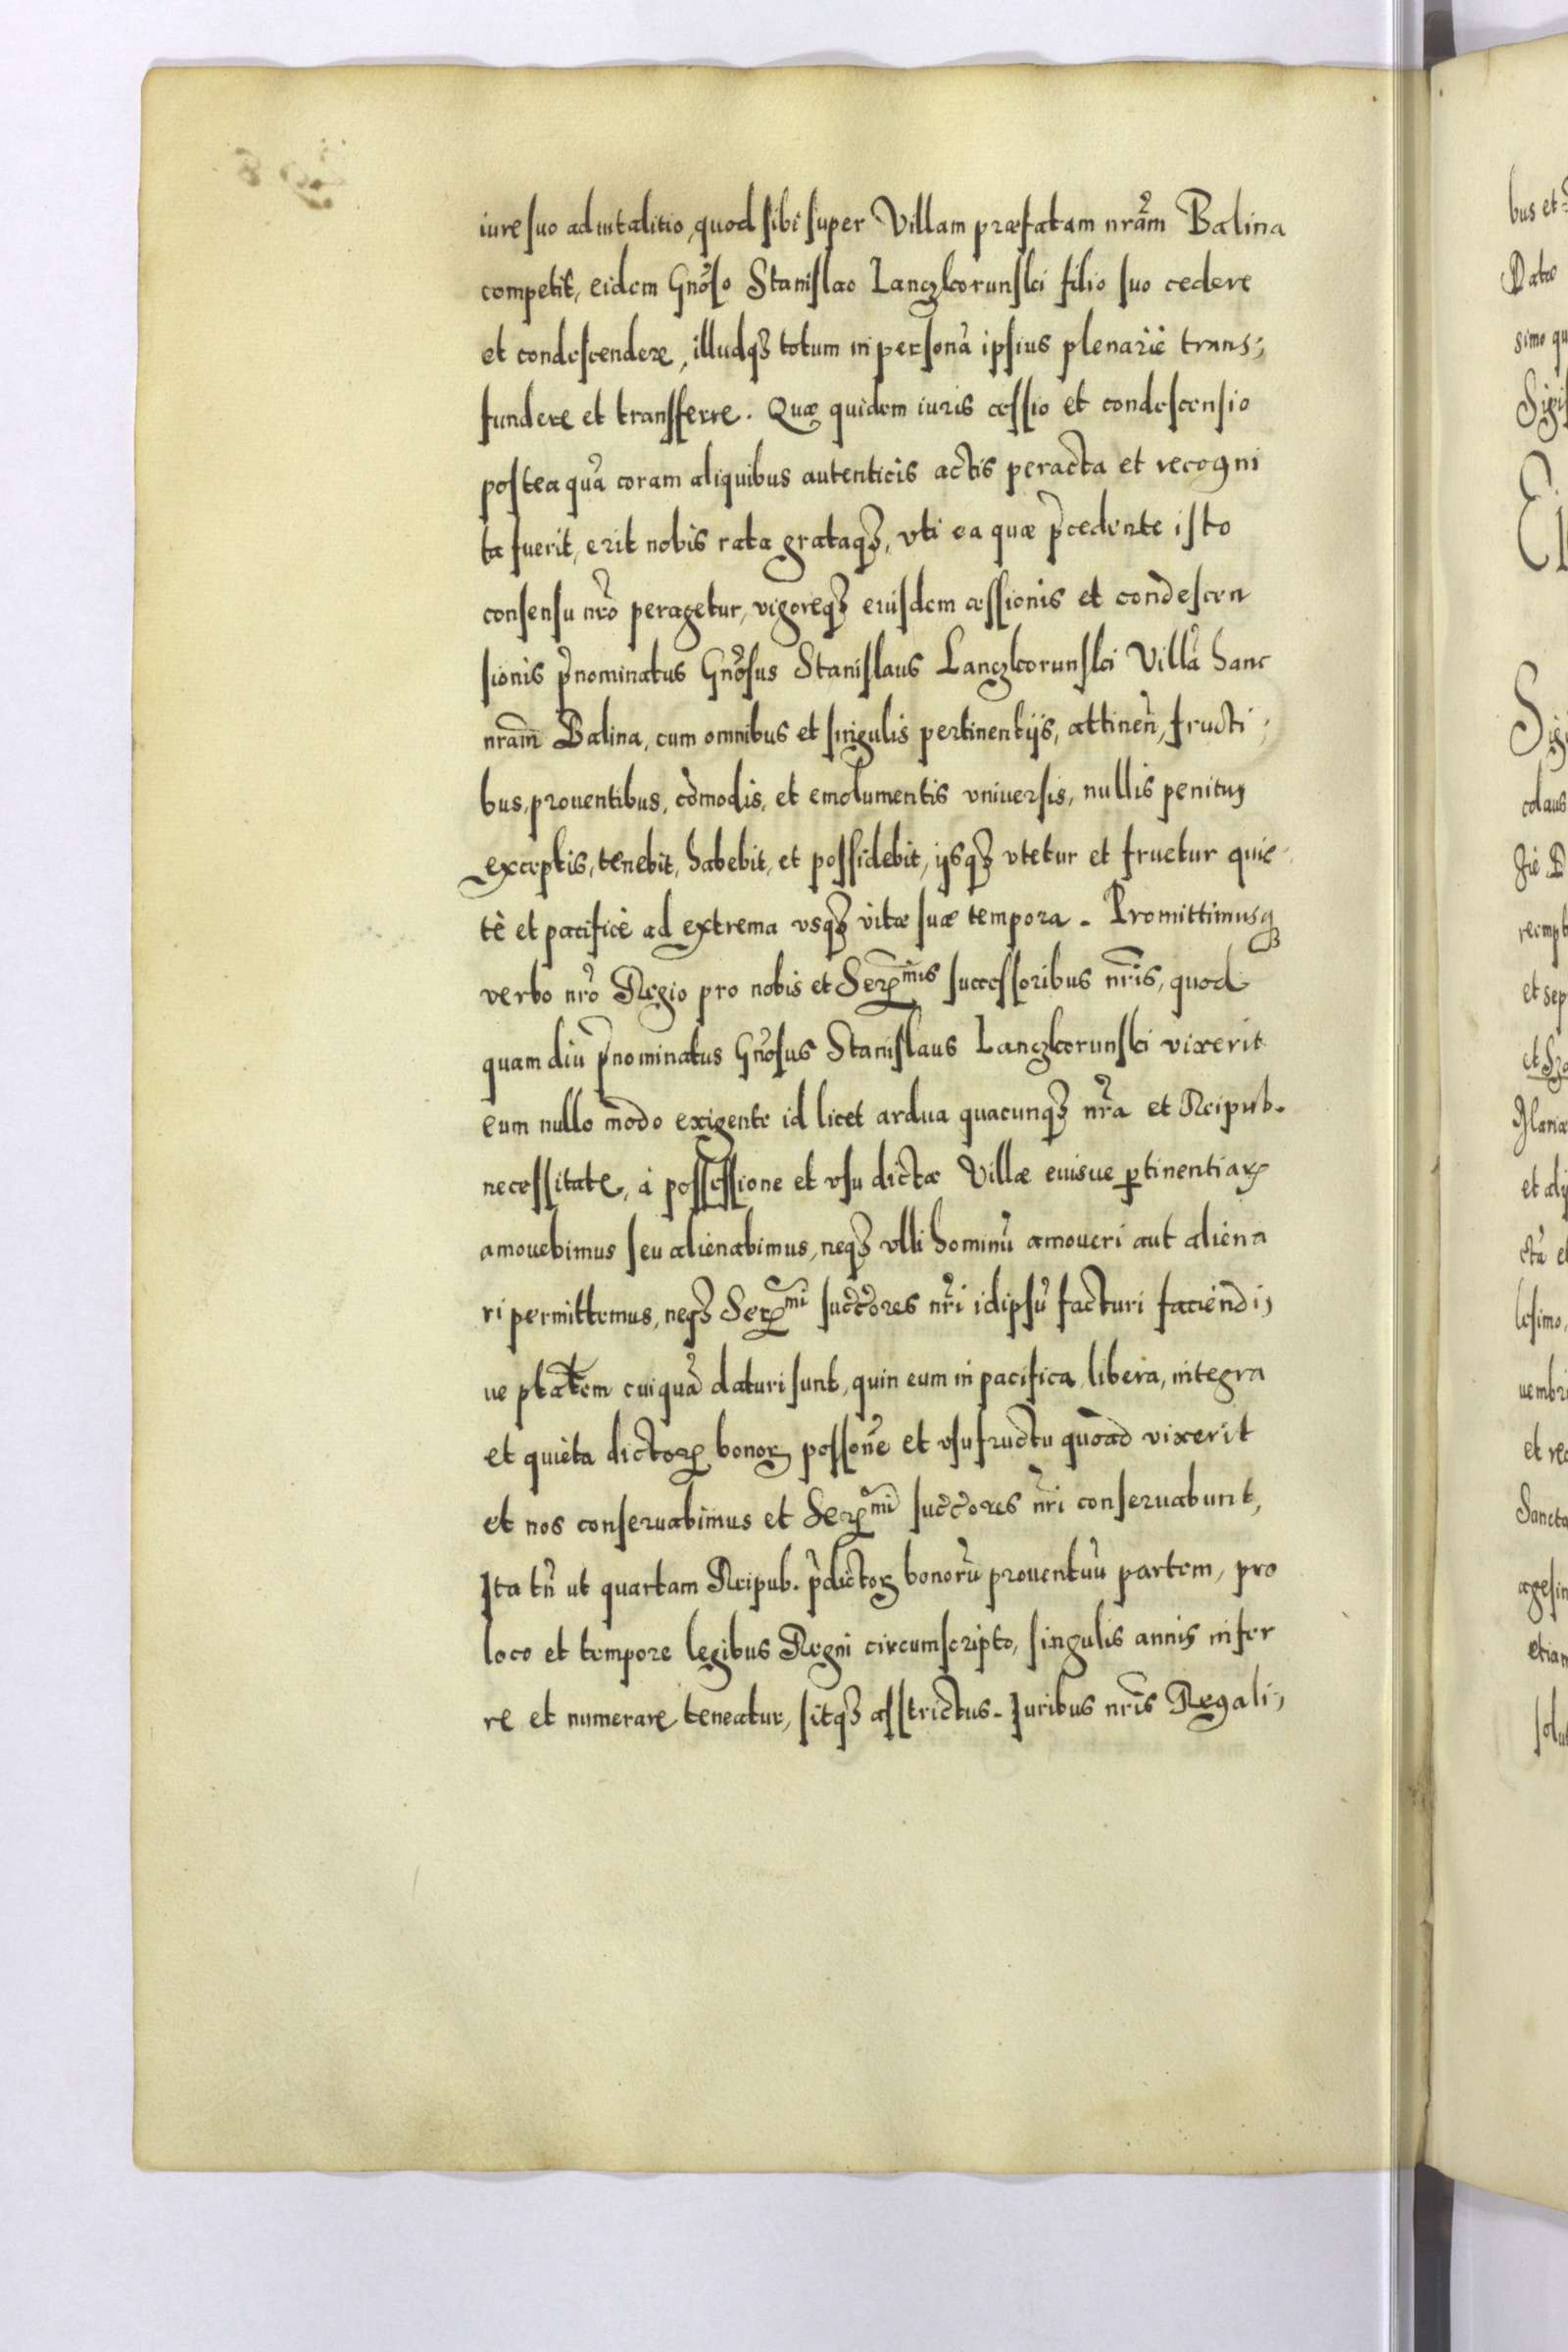 iure suo aduitalitio, quod sibi super Villam præfatam nrãm Balina
competit, eidem Gnõso Stanislao Lanczkorunski filio suo cedere
et condescendere, illudqȝ totum in personã ipsius plenariè trans-
fundere et transferre. Quæ quidem iuris cessio et condescensio
posteaquã coram aliquibus autenticis actis peracta et recogni
ta fuerit, erit nobis rata grataqȝ, vti ea quæ p̃cedente isto
consensu nr̃o peragetur, vigoreqȝ eiusdem cessionis et condescen
sionis p̃nominatus Gnõsus Stanislaus Lanczkorunski Villã hanc
nrãm Balina, cum omnibus et singulis pertinentijs, attineñ, fructi-
bus, prouentibus, cõmodis, et emolumentis vniuersis, nullis penitus
exceptis, tenebit, habebit, et possidebit, ijsqȝ vtetur et fruetur quie-
tè et pacificè ad extrema vsqȝ vitæ suæ tempora. Promittimusqȝ
verbo nr̃o Regio pro nobis et Serꝫmis successoribus nr̃is, quod
quam diu p̃nominatus Gnõsus Stanislaus Lanczkorunski vixerit
eum nullo modo exigente id licet ardua quacunqȝ nr̃a et Reipub.
necessitate, à possessione et vsu dictæ Villæ eiusue ꝑtinentiaꝝ
amouebimus seu alienabimus, neqȝ vlli hominũ amoueri aut aliena
ri permittemus, neqȝ Serꝫmi succc̃ores nr̃i idipsũ facturi faciendi-
ue ptãtem cuiquã daturi sunt, quin eum in pacifica, libera, integra
et quièta dictoꝝ bonoꝝ possoñe et vsufructu quoad vixerit
et nos conseruabimus et Serꝫmi succc̃ores nr̃i conseruabunt,
Ita tñ ut quartam Reipub. p̃dictoꝝ bonorũ prouentuũ partem, pro
loco et tempore legibus Regni circumscripto, singulis annis infer
re et numerare teneatur, sitqȝ asstrictus. Iuribus nr̃is Regali-